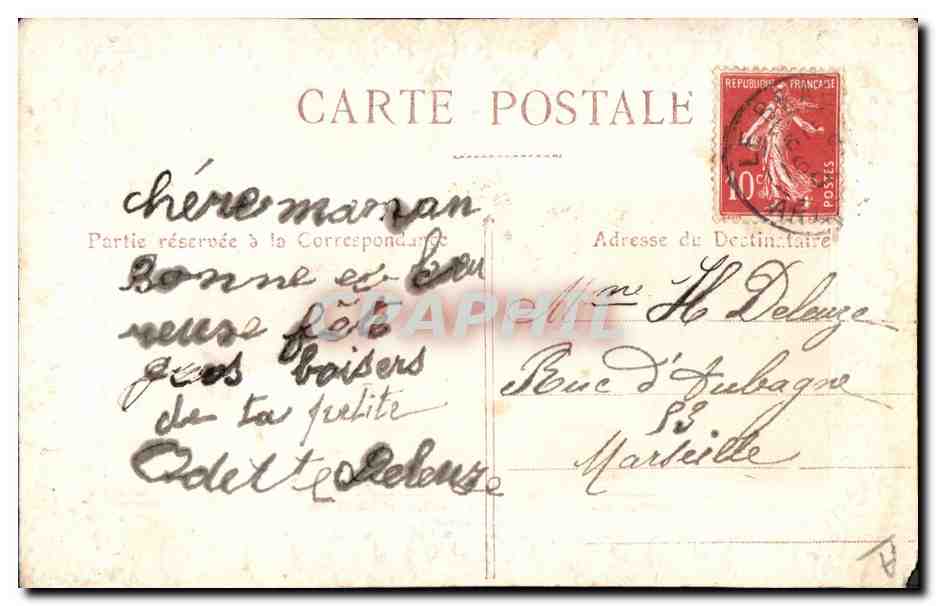 CARTE POSTALE
REPUBLIQUE FRANÇAISE
10 c
POSTES
Partie réservée à la Correspondance
chére maman
Bonne et heu
reuse fête
gros baisers
de ta petite
Odette Deleuze
Adresse du Destinataire
Mme H Deleuze
Rue d'Aubagne
53
Marseille
CPAPHIL
A